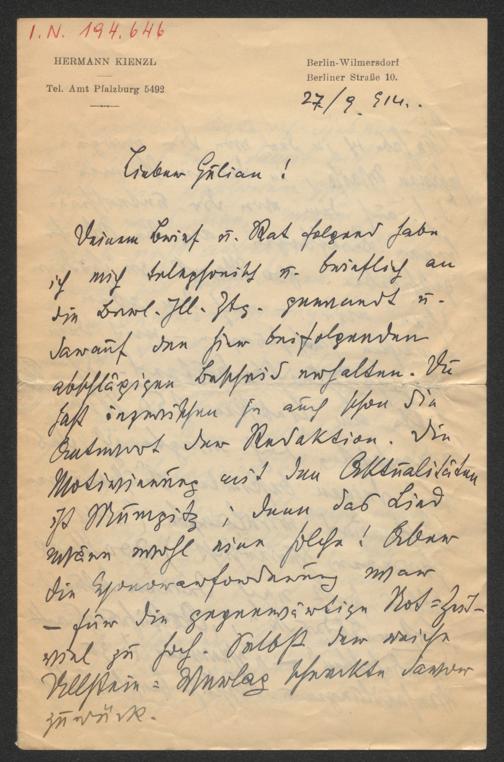 I.N. 194.646
HERMANN KIENZL
Tel. Amt Pfalzburg 5492
Berlin-Wilmersdorf
Berliner Straße 10.
27/9. 914.
Lieber Julian!
Deinem Brief u. Rat folgend habe
ich mich telephonisch u. brieflich an
die Berl. Ill. Ztg. gewandt u.
darauf den hier beifolgenden
abschlägigen Bescheid erhalten. Du
hast inzwischen ja auch schon die
Antwort der Redaktion. Die
Motivierung mit den Aktualitäten
ist Mumpitz; denn das Lied
wäre wohl eine solche! Aber
die Honorarforderung war
– für die gegenwärtige Not=Zeit –
viel zu hoch. Selbst der reiche
Ullstein=Verlag schreckte davor
zurück.